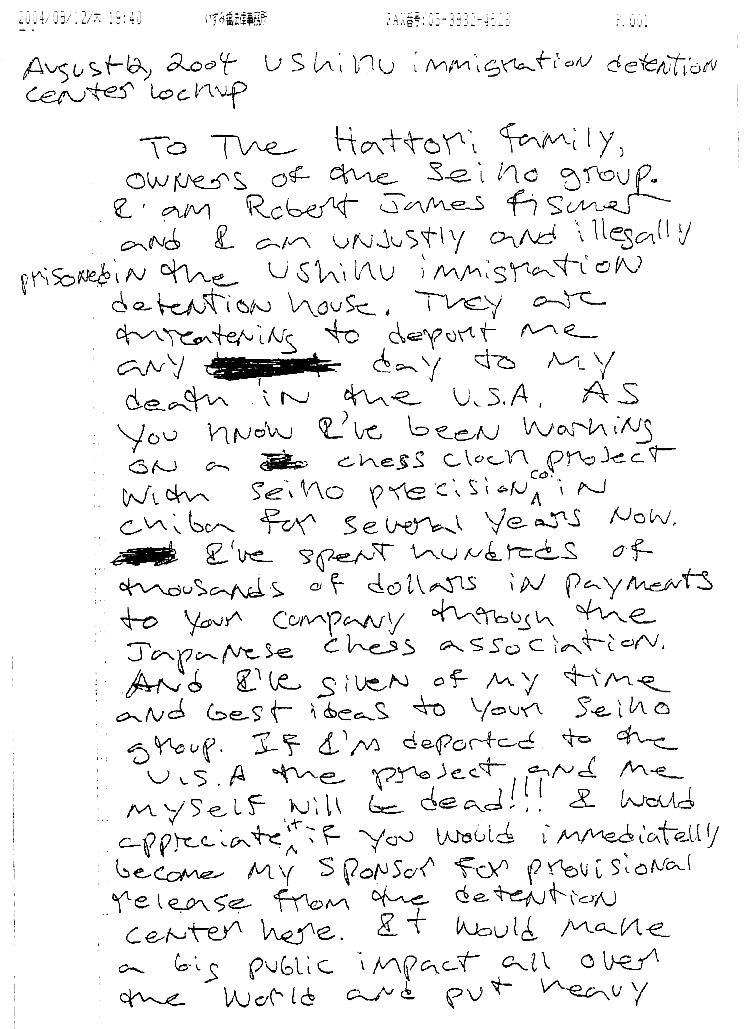 2004/08/12/木 19:40 いずみ橋法律事務所 FAX番号:03-3332-4628 P.001
August 12, 2004 Ushiku immigration detention
center lockup
To The Hattori family,
owners of the Seiko group.
I am Robert James Fischer
and I am unjustly and illegally
prisoned in the Ushiku immigration
detention house. They are
threatening to deport me
any day to my
death in the U.S.A. As
you know I've been working
on a chess clock project
with Seiko precision co. in
chiba for several years now.
I've spent hundreds of
thousands of dollars in payments
to your company through the
Japanese chess association.
And I've given of my time
and best ideas to your Seiko
group. If I'm deported to the
U.S.A the project and me
myself will be dead!!! I would
appreciate it if you would immediatelly
become my sponsor for provisional
release from the detention
center here. It would make
a big public impact all over
the world and put heavy